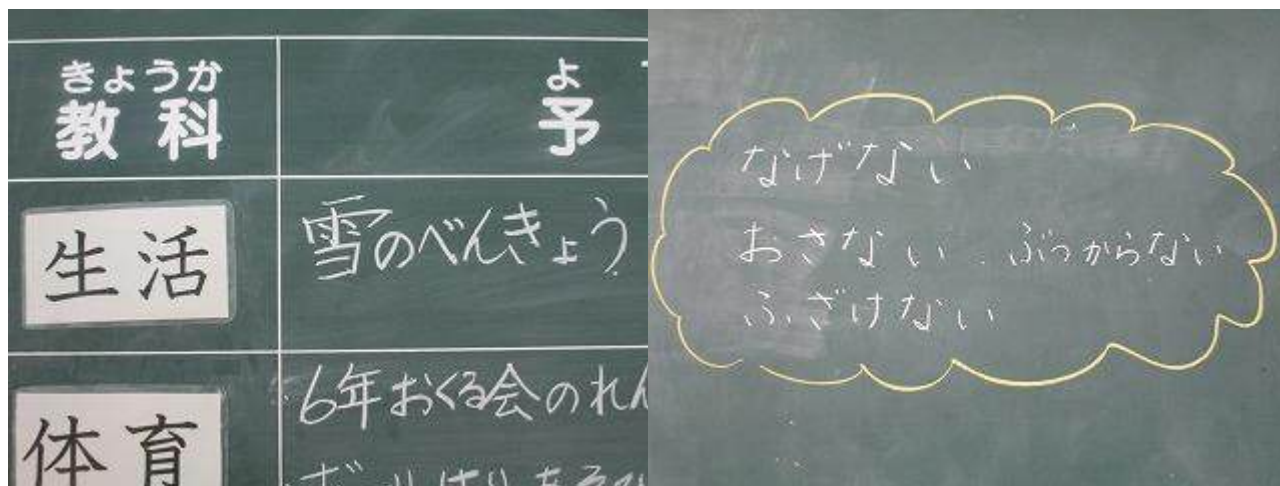 きょうか
教科
よ
予
生活
雪のべんきょう
体育
6年おくる会のれん
なげない
おさない ぶつからない
ふざけない